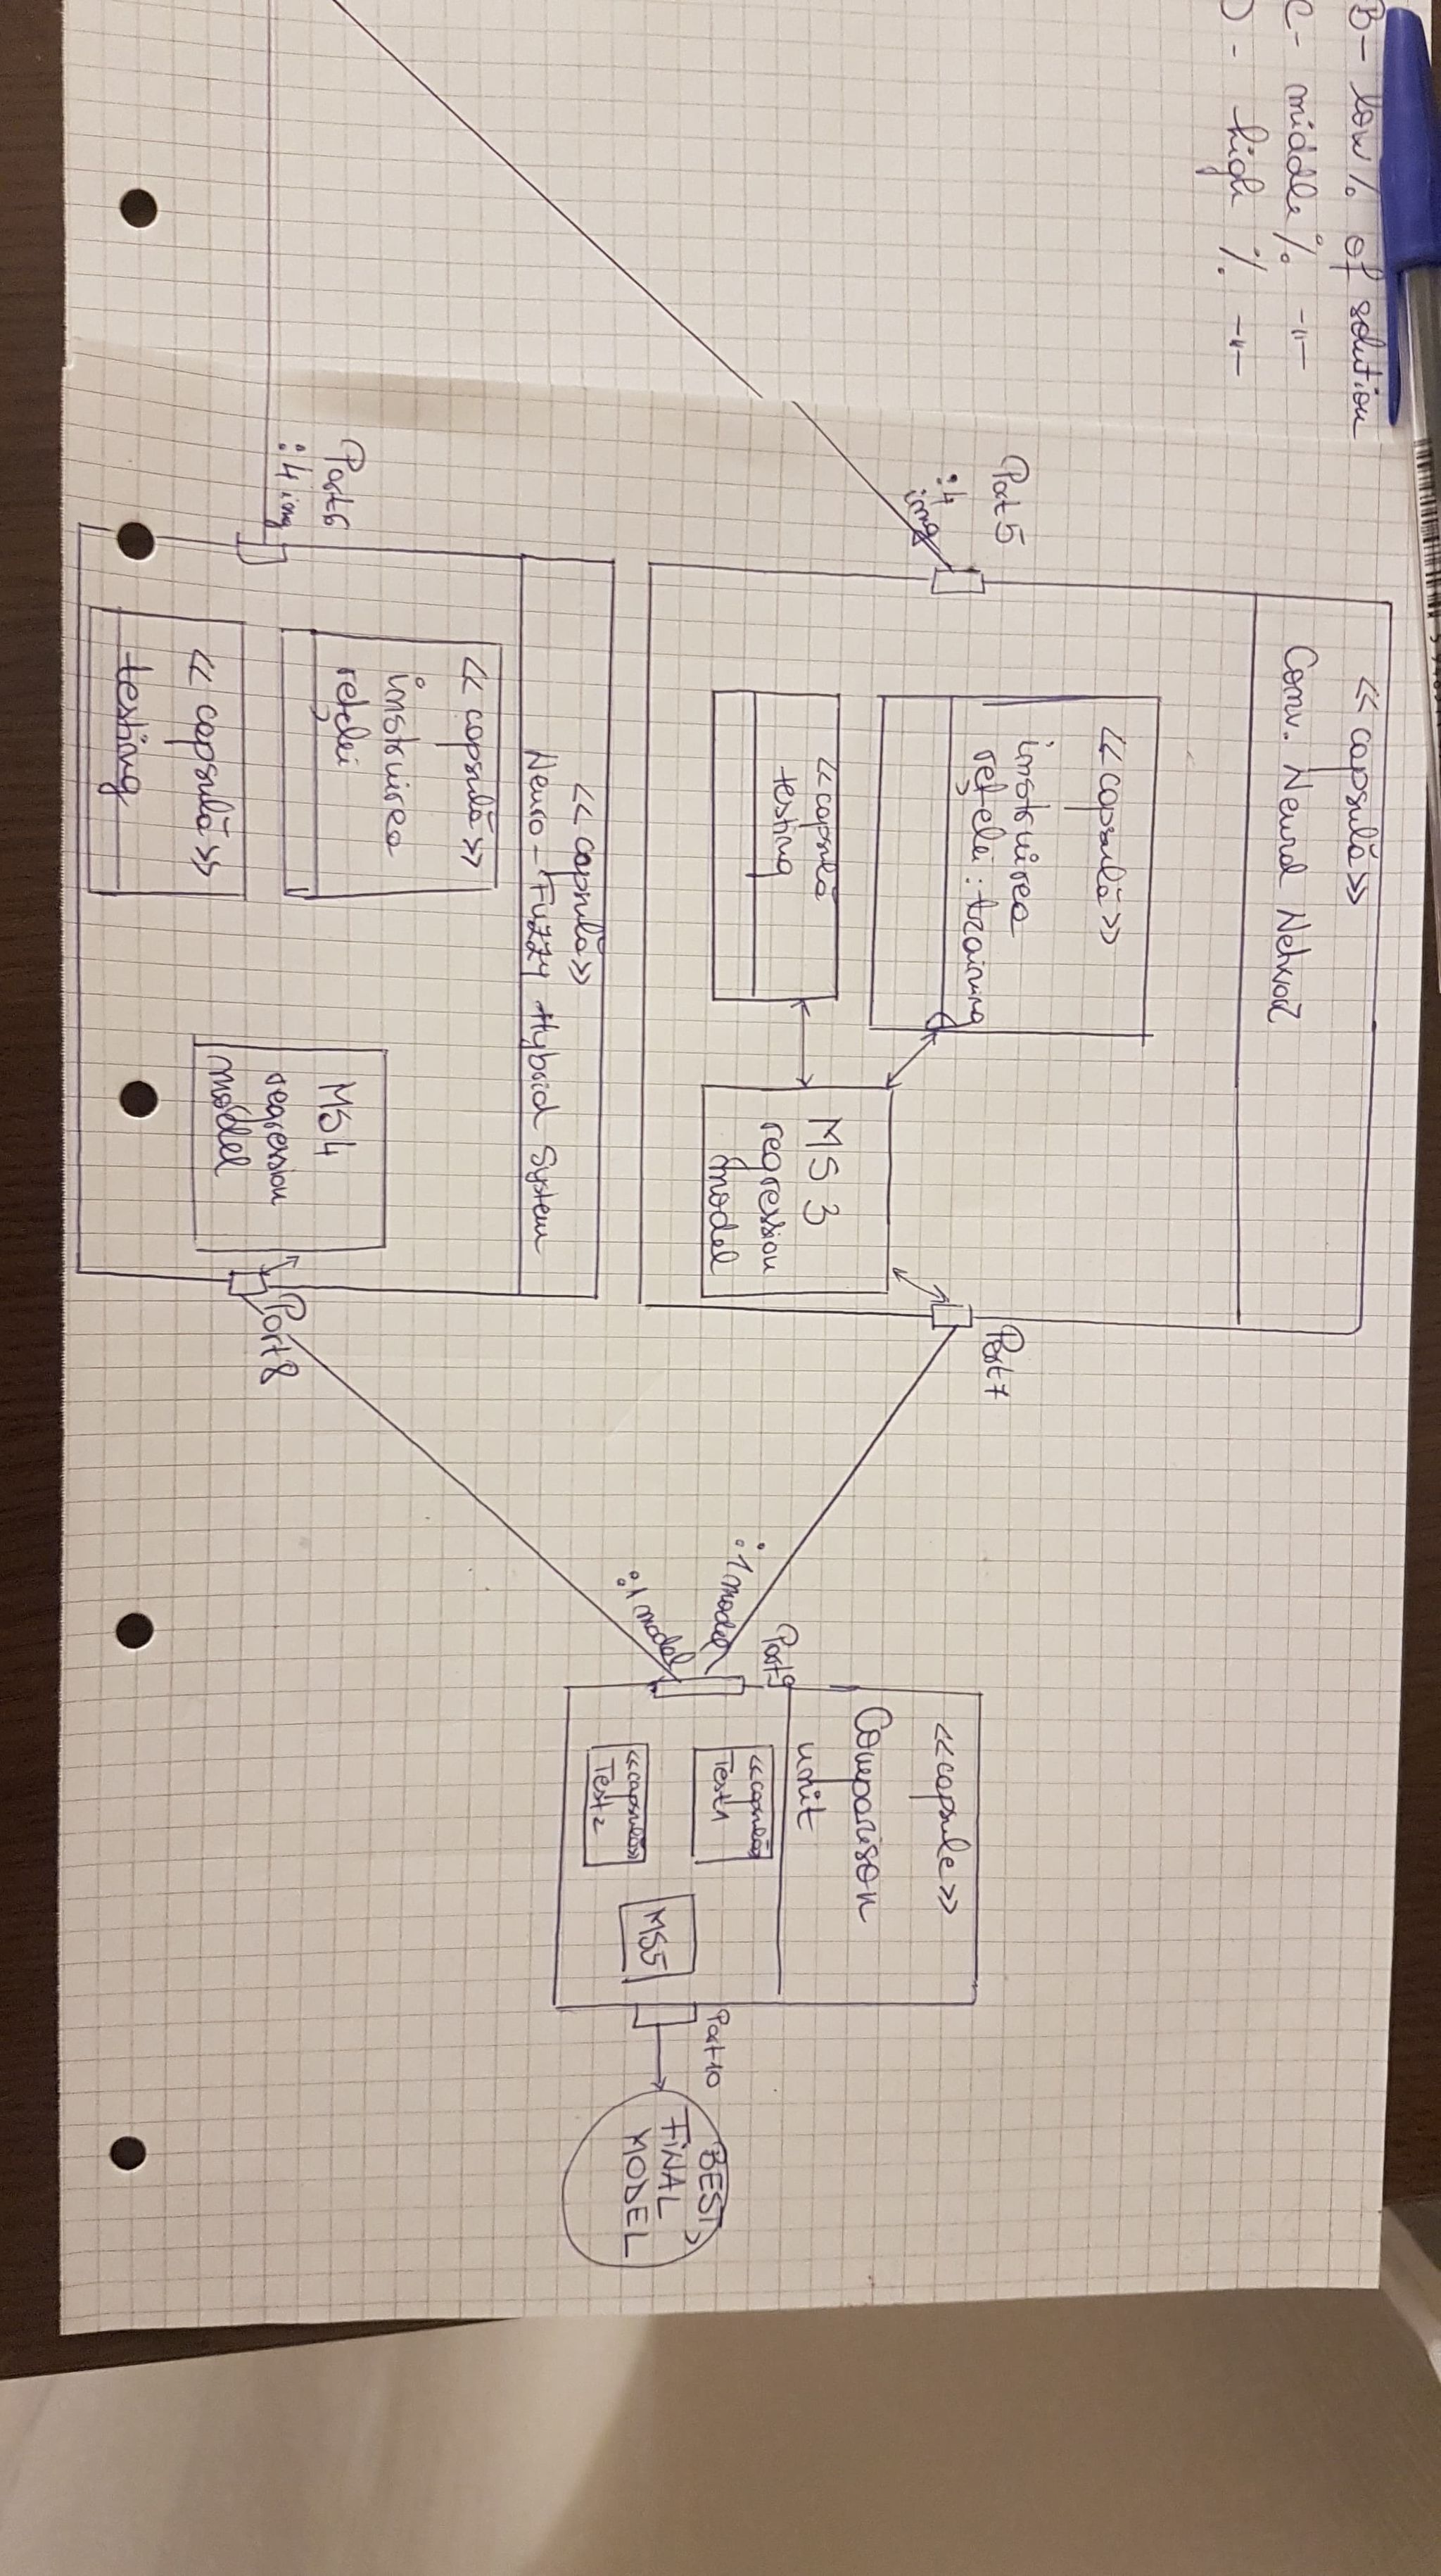 B- low % of solution
C- middle % -"-
D - high % -"-
<<capsulă>>
Conv. Neural Network
Port5
:4 img
<<capsulă>>
instruirea
rețelei : training
<<capsulă
testing
MS 3
regression
model
Port7
<<capsulă>>
Neuro-Fuzzy Hybrid System
Port6
:4 img
<<capsulă>>
instruirea
rețelei
<<capsulă>>
testing
MS4
regression
model
Port8
:1 model
:1 model
Port9
<<capsule>>
Comparison
unit
<<capsulă>>
Test1
<<capsulă>>
Test2
MS5
Port10
BEST
FINAL
MODEL